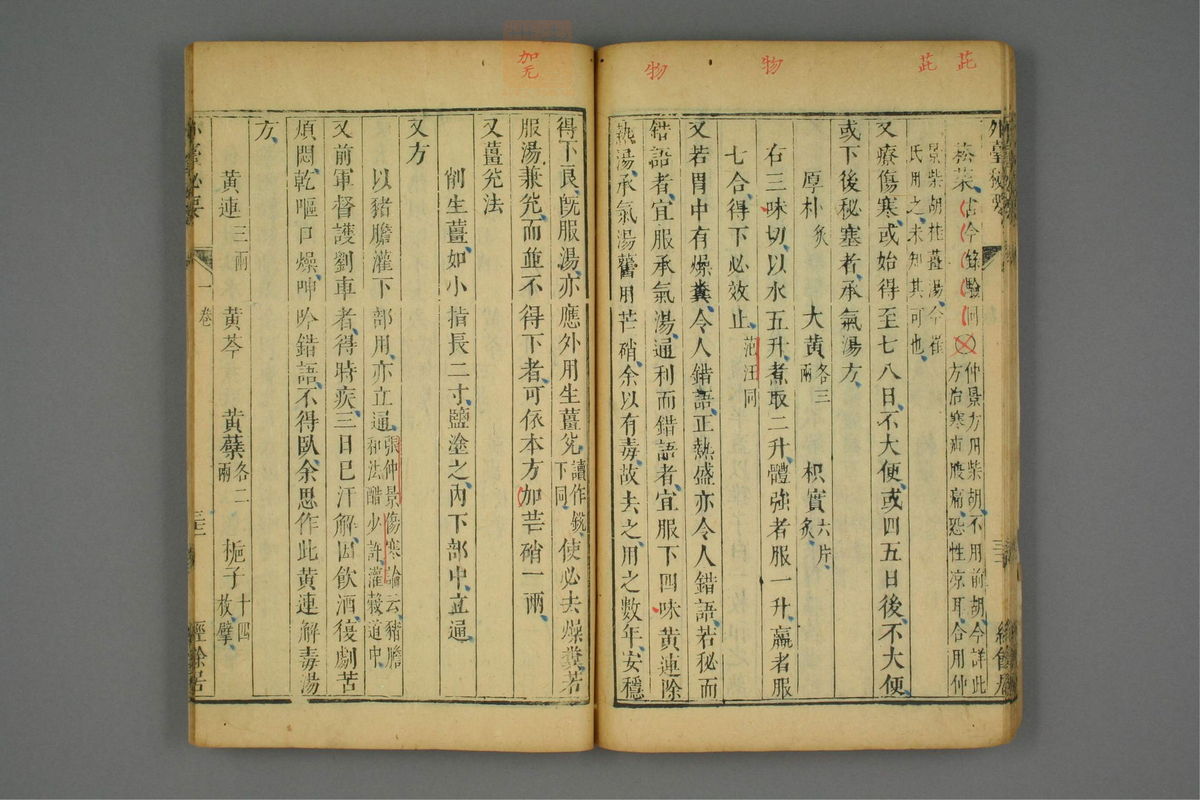 芘
芘
物
物
外臺秘要
海藻古今錄驗同
仲景方用柴胡不用前胡今詳此
方治寒疝腰痛恐性涼耳合用仲
景柴胡桂薑湯今崔
氏用之未知其可也
又療傷寒或始得至七八日不大便或四五日後不大便
或下後秘塞者承氣湯方
厚朴炙 大黃各三兩 枳實六片炙
右三味切以水五升煮取二升體強者服一升羸者服
七合得下必效止范汪同
又若胃中有燥糞令人錯語正熱盛亦令人錯語若秘而
錯語者宜服承氣湯通利而錯語者宜服下四味黃連除
熱湯承氣湯舊用芒硝余以有毒故去之用之數年安穩
得下良既服湯亦應外用生薑兊讀作銳下同使必去燥糞若
服湯兼兊而並不得下者可依本方加芒硝一兩
又薑兊法
削生薑如小指長二寸鹽塗之內下部中立通
又方
以豬膽灌下部用亦立通張仲景傷寒論云豬膽
和法醋少許灌穀道中
又前軍督護劉車者得時疾三日已汗解因飲酒復劇苦
煩悶乾嘔口燥呻吟錯語不得臥余思作此黃連解毒湯
方
黃連三兩 黃芩 黃蘗各二兩 梔子十四枚擘
外臺秘要
一卷
三十三
經餘居
加